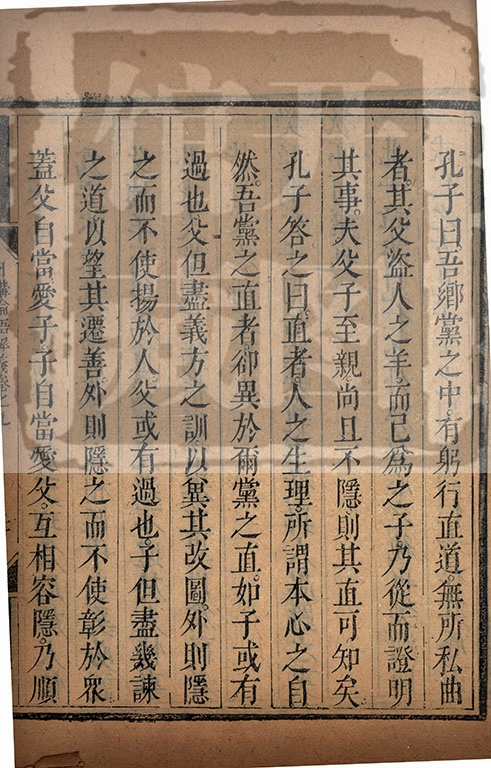 孔子曰吾鄉黨之中。有躬行直道。無所私曲
者。其父盜人之羊。而己爲之子。乃從而證明
其事。夫父子至親。尚且不隱。則其直可知矣。
孔子答之曰。直者。人之生理。所謂本心之自
然。吾黨之直者。卻異於爾黨之直。如子或有
過也。父但盡義方之訓。以冀其改圖。外則隱
之而不使揚於人。父或有過也。子但盡幾諫
之道。以望其遷善。外則隱之而不使彰於衆
蓋父自當愛子。子自當愛父。互相容隱。乃順